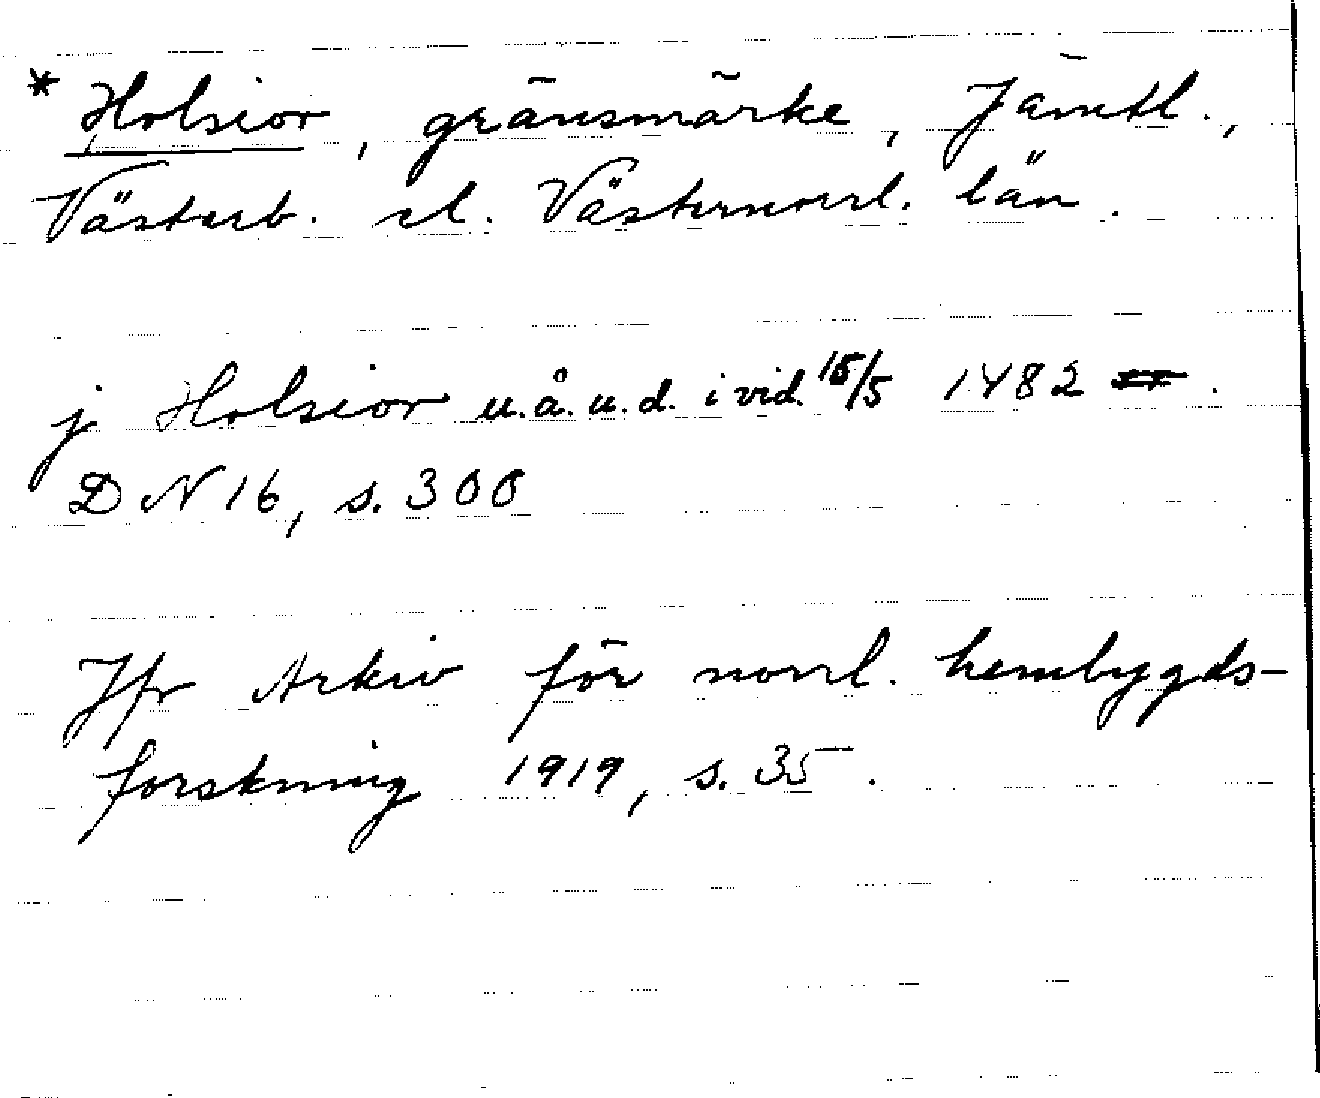 * Holsior, gränsmärke, Jämtl.,
Västerb. el. Västernorrl. län.
j Holsior u.å.u.d. i vid. 15/5 1482.
DN 16, s. 300
Jfr Arkiv för norrl. hembygds-
forskning 1919, s. 35.